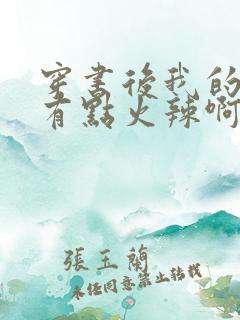 穿書後我的
有點火辣啊
張玉蘭
未经同意禁止转载